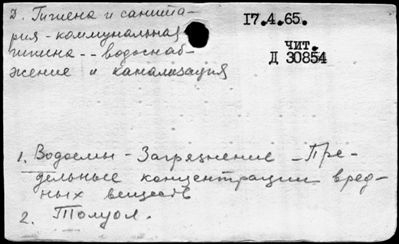 Д. Гигиена и санита-
рия - коммунальная
гигиена -- водоснаб-
жение и канализация
17.4.65.
ЧИТ.
Д 30854
1. Водоемы - Загрязнение - Пре-
дельные концентрации вред-
ных веществ
2. Толуол.